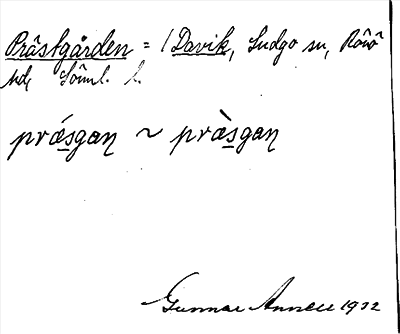 Prästgården = / Davik, Ludgo sn, Rönö
hd, Söml. l.
prǽsgaɳ ~ præ̀sgaɳ
Gunnar Annell 1932